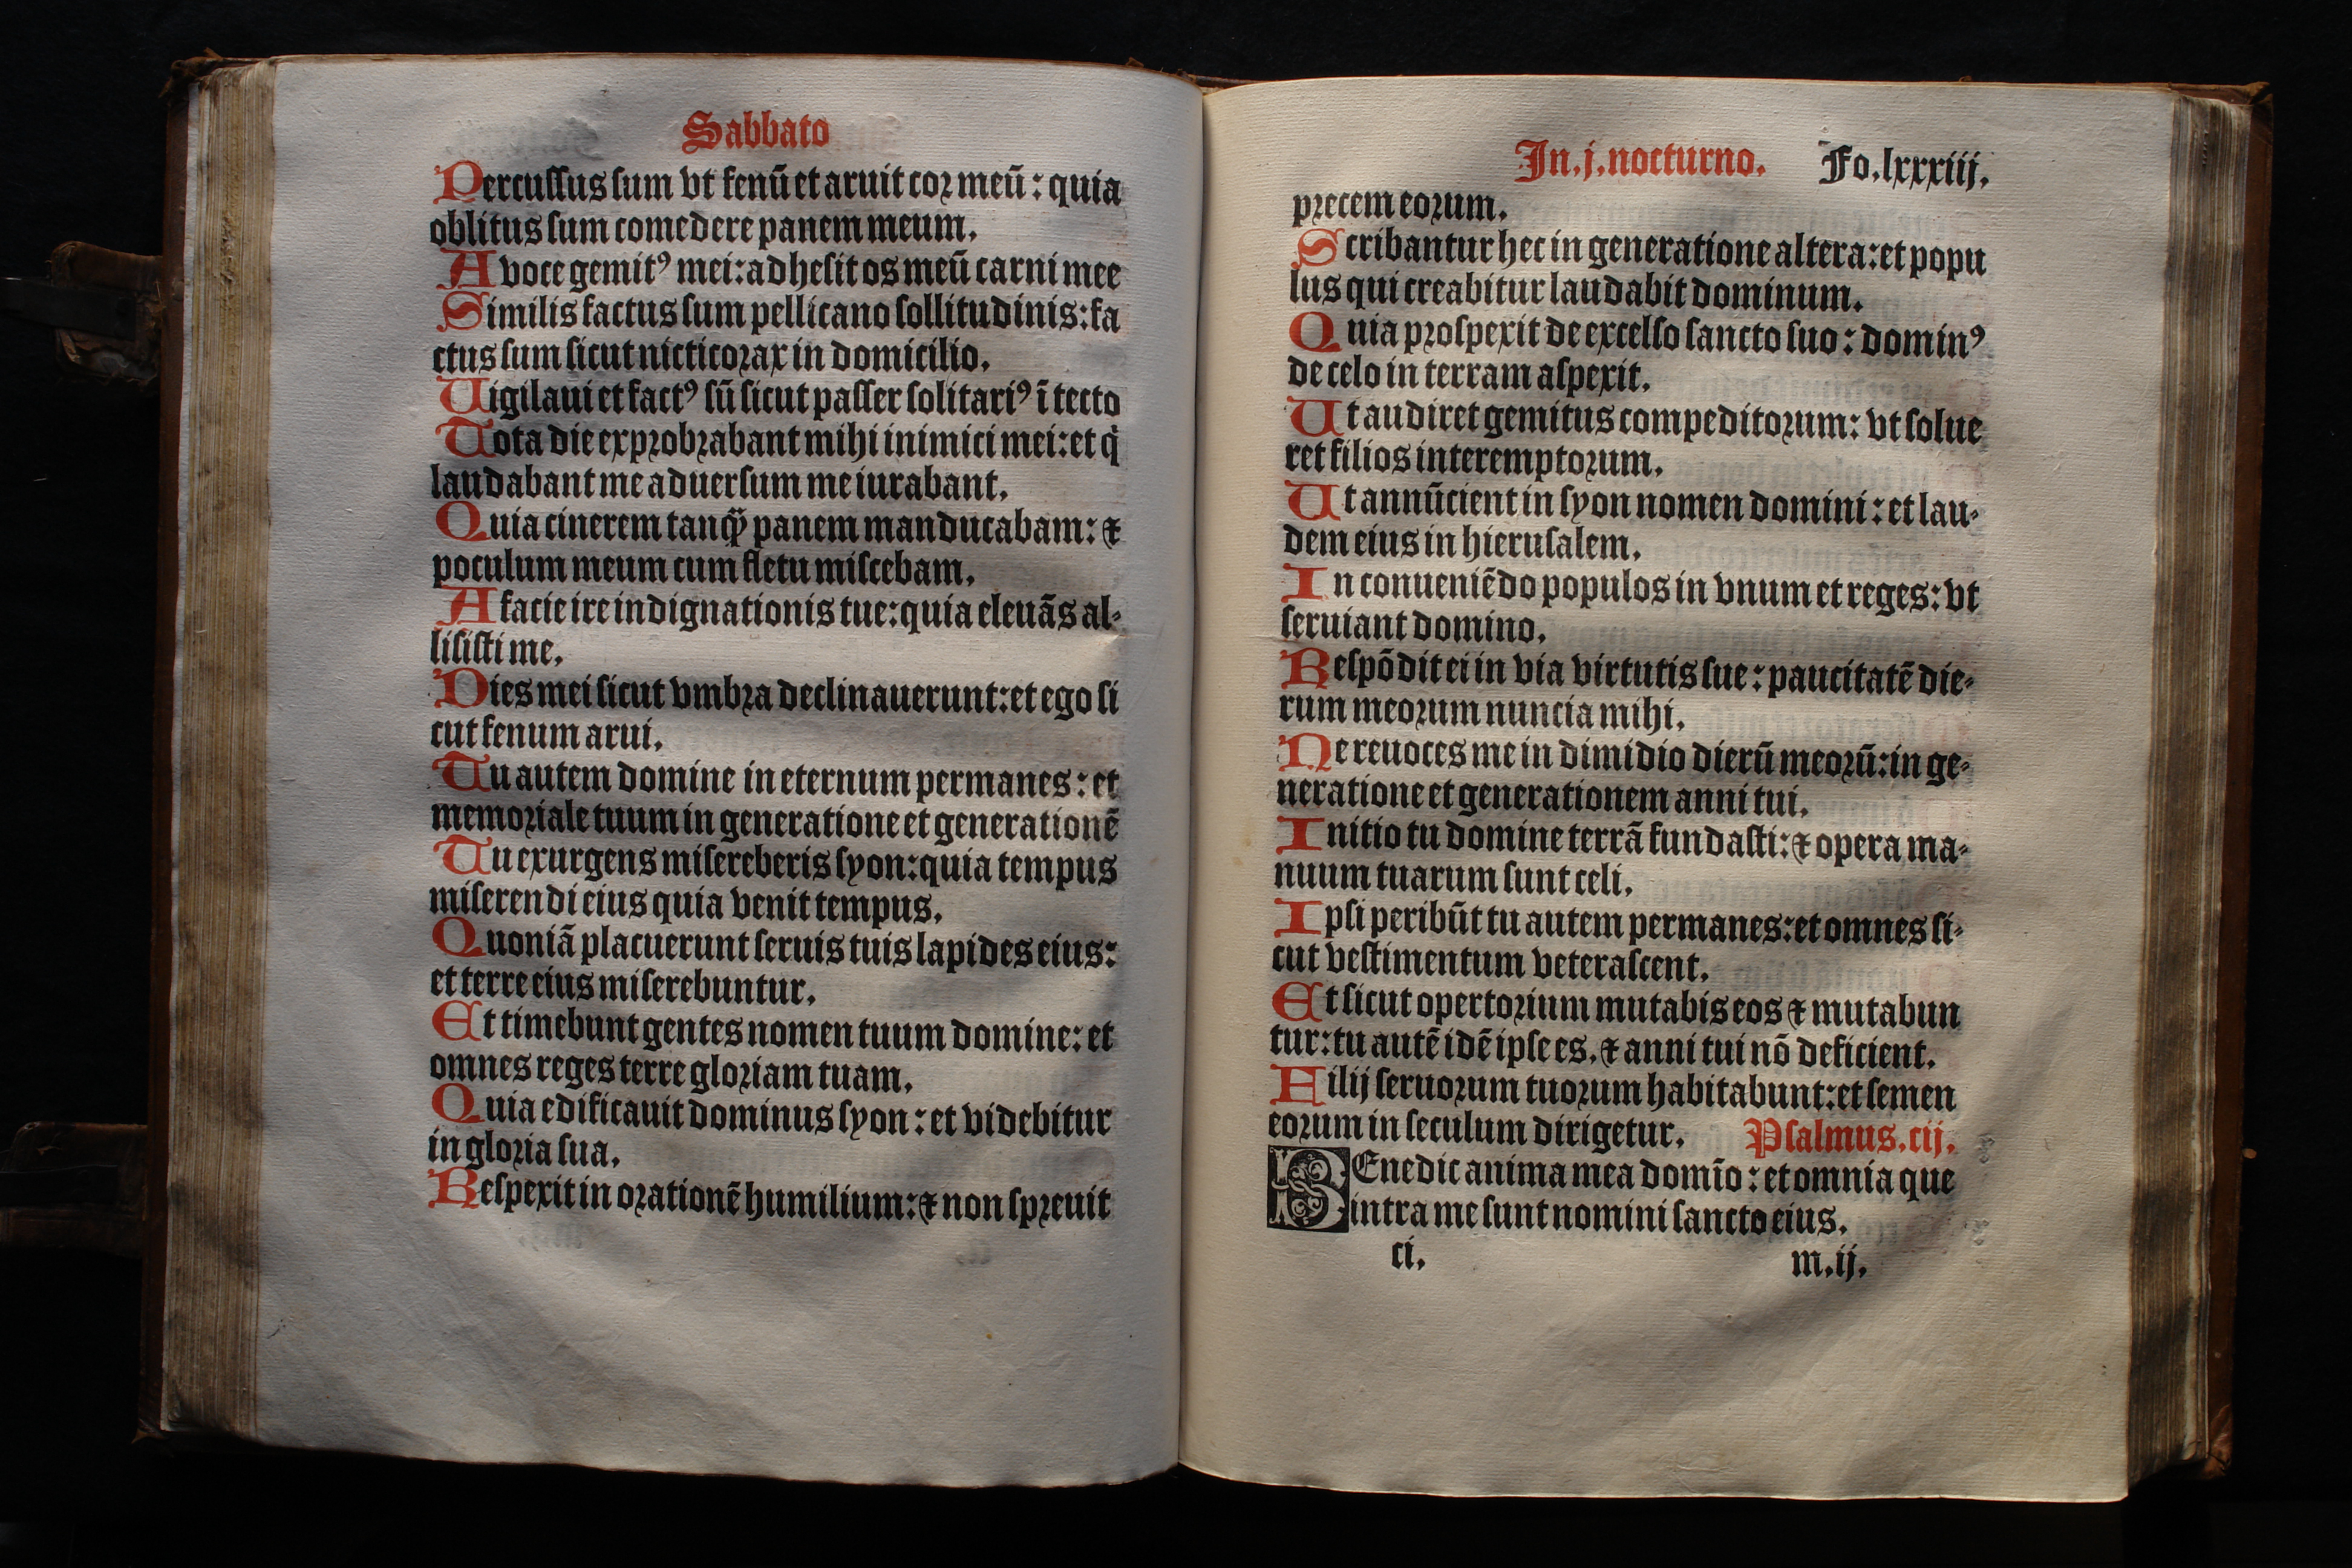 Sabbato
Percussus sum vt fenū et aruit cor meū: quia
oblitus sum comedere panem meum.
A voce gemitꝰ mei: adhesit os meū carni mee
Similis factus sum pellicano sollitudinis: fa
ctus sum sicut nicticorax in domicilio.
Uigilaui et factꝰ sū sicut passer solitariꝰ ī tecto
Tota die exprobrabant mihi inimici mei: et q̇
laudabant me aduersum me iurabant.
Quia cinerem tanꝙ̄ panem manducabam: ⁊
poculum meum cum fletu miscebam.
A facie ire indignationis tue: quia eleuās al-
lisisti me.
Dies mei sicut vmbra declinauerunt: et ego si
cut fenum arui.
Tu autem domine in eternum permanes: et
memoriale tuum in generatione et generationē
Tu exurgens misereberis syon: quia tempus
miserendi eius quia venit tempus.
Quoniā placuerunt seruis tuis lapides eius:
et terre eius miserebuntur.
Et timebunt gentes nomen tuum domine: et
omnes reges terre gloriam tuam.
Quia edificauit dominus syon: et videbitur
in gloria sua.
Respexit in orationē humilium: ⁊ non spreuit
In.j.nocturno. Fo.lxxxiij.
precem eorum.
Scribantur hec in generatione altera: et popu
lus qui creabitur laudabit dominum.
Quia prospexit de excelso sancto suo: dominꝰ
de celo in terram aspexit.
Ut audiret gemitus compeditorum: vt solue
ret filios interemptorum.
Ut annūcient in syon nomen domini: et lau-
dem eius in hierusalem.
In conueniēdo populos in vnum et reges: vt
seruiant domino.
Respōdit ei in via virtutis sue: paucitatē die-
rum meorum nuncia mihi.
Ne reuoces me in dimidio dierū meorū: in ge-
neratione et generationem anni tui.
Initio tu domine terrā fundasti: ⁊ opera ma-
nuum tuarum sunt celi.
Ipsi peribūt tu autem permanes: et omnes si-
cut vestimentum veterascent.
Et sicut opertorium mutabis eos ⁊ mutabun
tur: tu autē idē ipse es. ⁊ anni tui nō deficient.
Filij seruorum tuorum habitabunt: et semen
eorum in seculum dirigetur. Psalmus.cij.
BEnedic anima mea domīo: et omnia que
intra me sunt nomini sancto eius.
ci. m.ij.